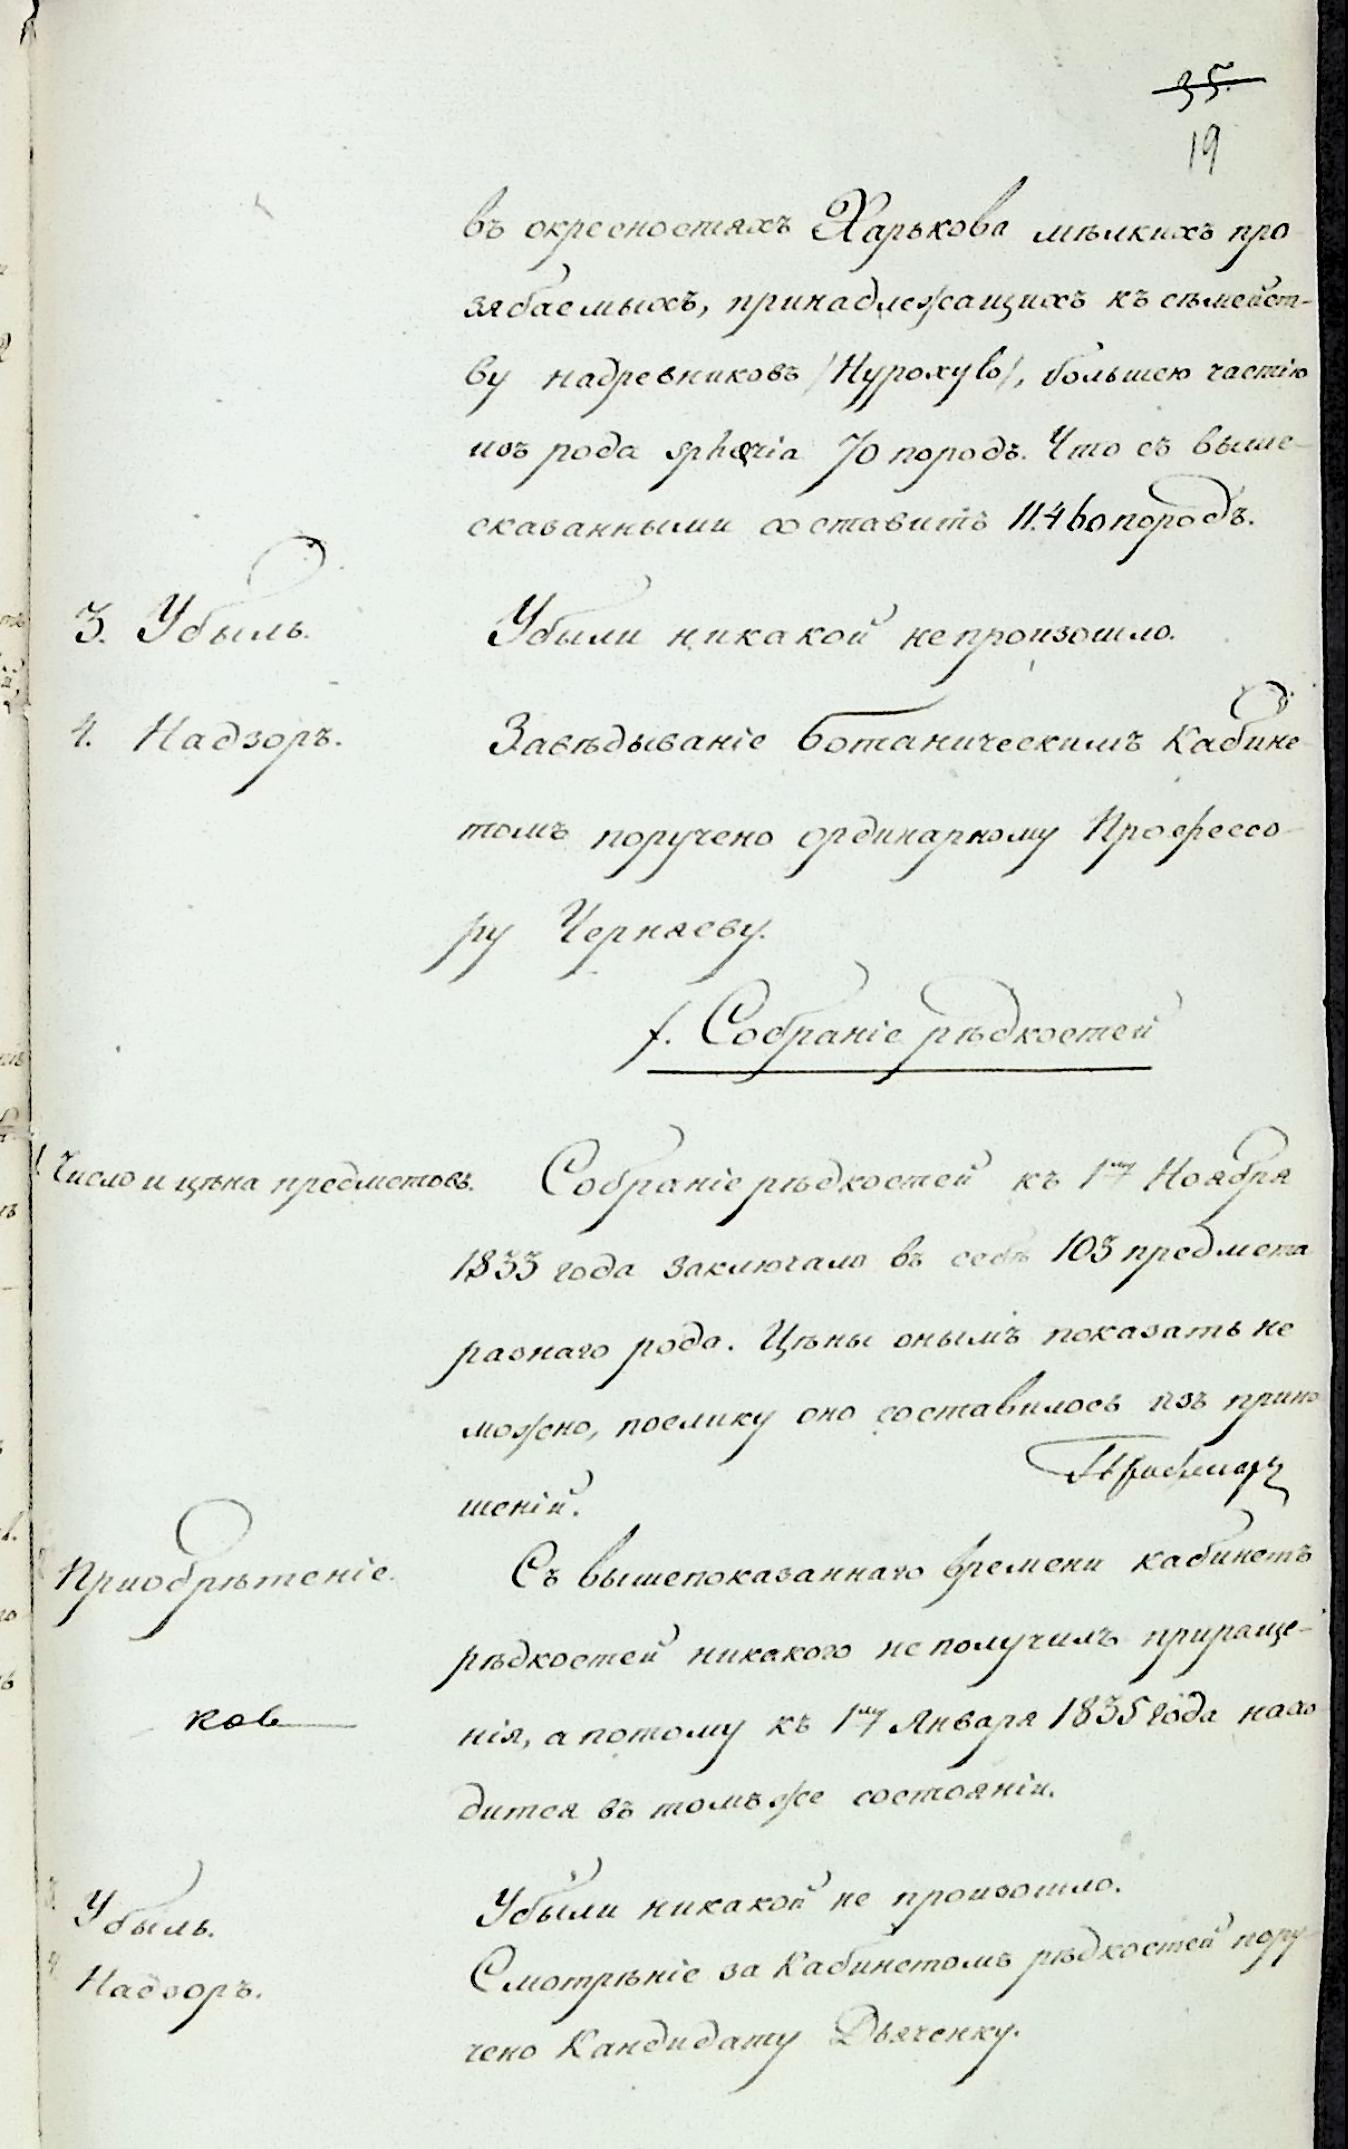 35.
19
въ окресностяхъ Харькова мѣлкихъ про
зябаемыхъ, принадлежащихъ къ сѣмейст-
ву надревниковъ /Hypoxyla/, большею частію
изъ рода sphæria 70 породъ. Что съ выше-
сказанными составитъ породъ.
3. Убыль. Убыли никакой не произошло.
4. Надзоръ. Завѣдываніе Ботаническимъ Кабине-
томъ поручено ординарному Профессо-
ру Черняеву.
f. Собраніе рѣдкостей
1. Число и цѣна предметовъ. Собраніе рѣдкостей къ 1му Ноября
1833 года заключало въ себѣ 103 предмета
разнаго рода. Цѣны онымъ показать не
можно, поелику оно составилось изъ прино
шеній.
Приобрѣтеніе. Съ вышепоказаннаго времени кабинетъ
рѣдкостей никакого не получилъ прираще-
нія, а потому къ 1му Января 1835 года нахо
ков
дится въ томъ же состояніи.
Убыль. Убыли никакой не произошло.
Надзоръ. Смотрѣніе за Кабинетомъ рѣдкостей пору
чено Кандидату Дьяченку.